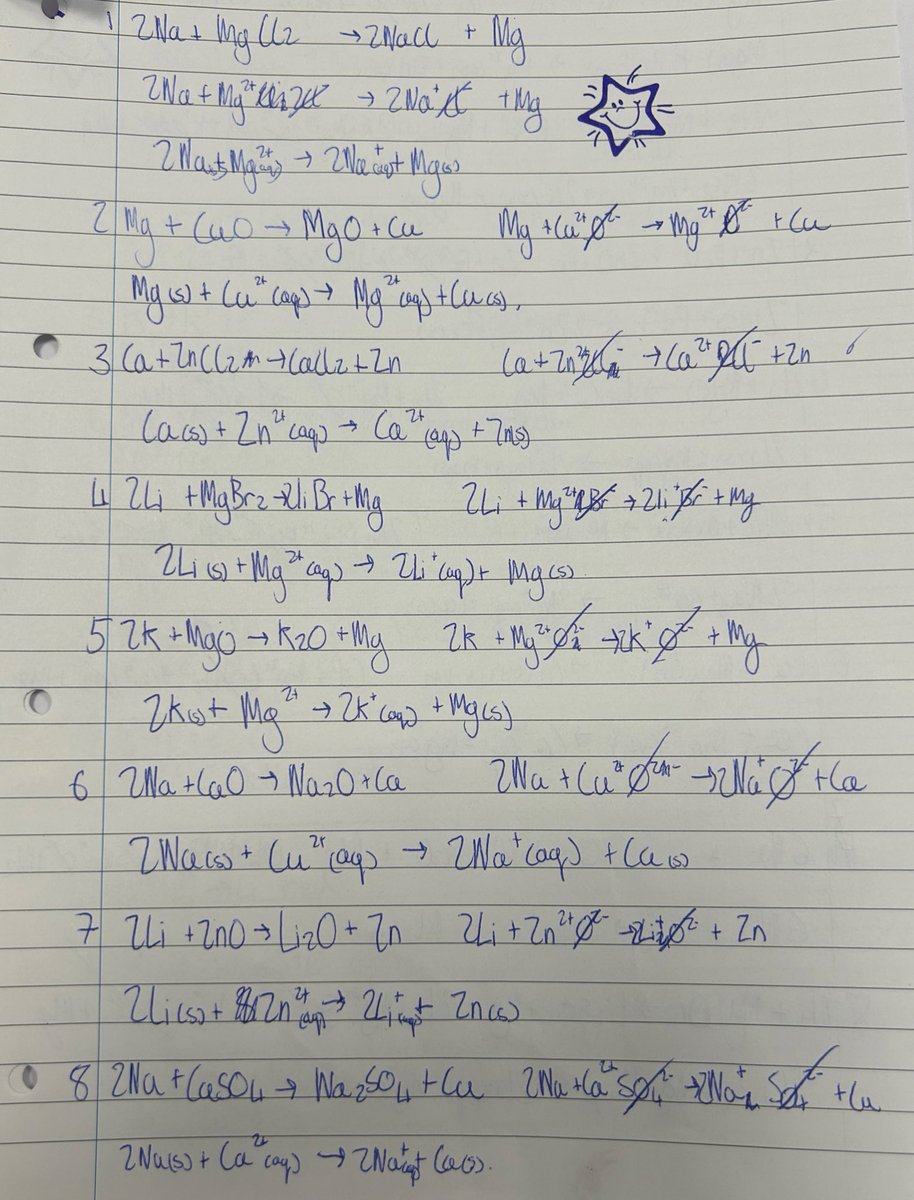 1 2Na + MgCl2 → 2NaCl + Mg
2Na + Mg²⁺ → 2Na⁺ + Mg
2Na(s) + Mg²⁺(aq) → 2Na⁺(aq) + Mg(s)
2 Mg + CuO → MgO + Cu Mg + Cu²⁺O²⁻ → Mg²⁺O²⁻ + Cu
Mg(s) + Cu²⁺(aq) → Mg²⁺(aq) + Cu(s),
3 Ca + ZnCl2 → CaCl2 + Zn Ca + Zn²⁺ → Ca²⁺ 2Cl⁻ + Zn
Ca(s) + Zn²⁺(aq) → Ca²⁺(aq) + Zn(s)
4 2Li + MgBr2 → 2LiBr + Mg 2Li + Mg²⁺2Br⁻ → 2Li⁺Br⁻ + Mg
2Li(s) + Mg²⁺(aq) → 2Li⁺(aq) + Mg(s)
5 2K + MgO → K2O + Mg 2K + Mg²⁺O²⁻ → 2K⁺O²⁻ + Mg
2K(s) + Mg²⁺ → 2K⁺(aq) + Mg(s)
6 2Na + CuO → Na2O + Cu 2Na + Cu²⁺O²⁻ → 2Na⁺O²⁻ + Cu
2Na(s) + Cu²⁺(aq) → 2Na⁺(aq) + Cu(s)
7 2Li + ZnO → Li2O + Zn 2Li + Zn²⁺O²⁻ → 2Li⁺O²⁻ + Zn
2Li(s) + Zn²⁺(aq) → 2Li⁺(aq) + Zn(s)
8 2Na + CaSO4 → Na2SO4 + Ca 2Na + Ca²⁺SO4²⁻ → 2Na⁺SO4²⁻ + Ca
2Na(s) + Ca²⁺(aq) → 2Na⁺(aq) + Ca(s).